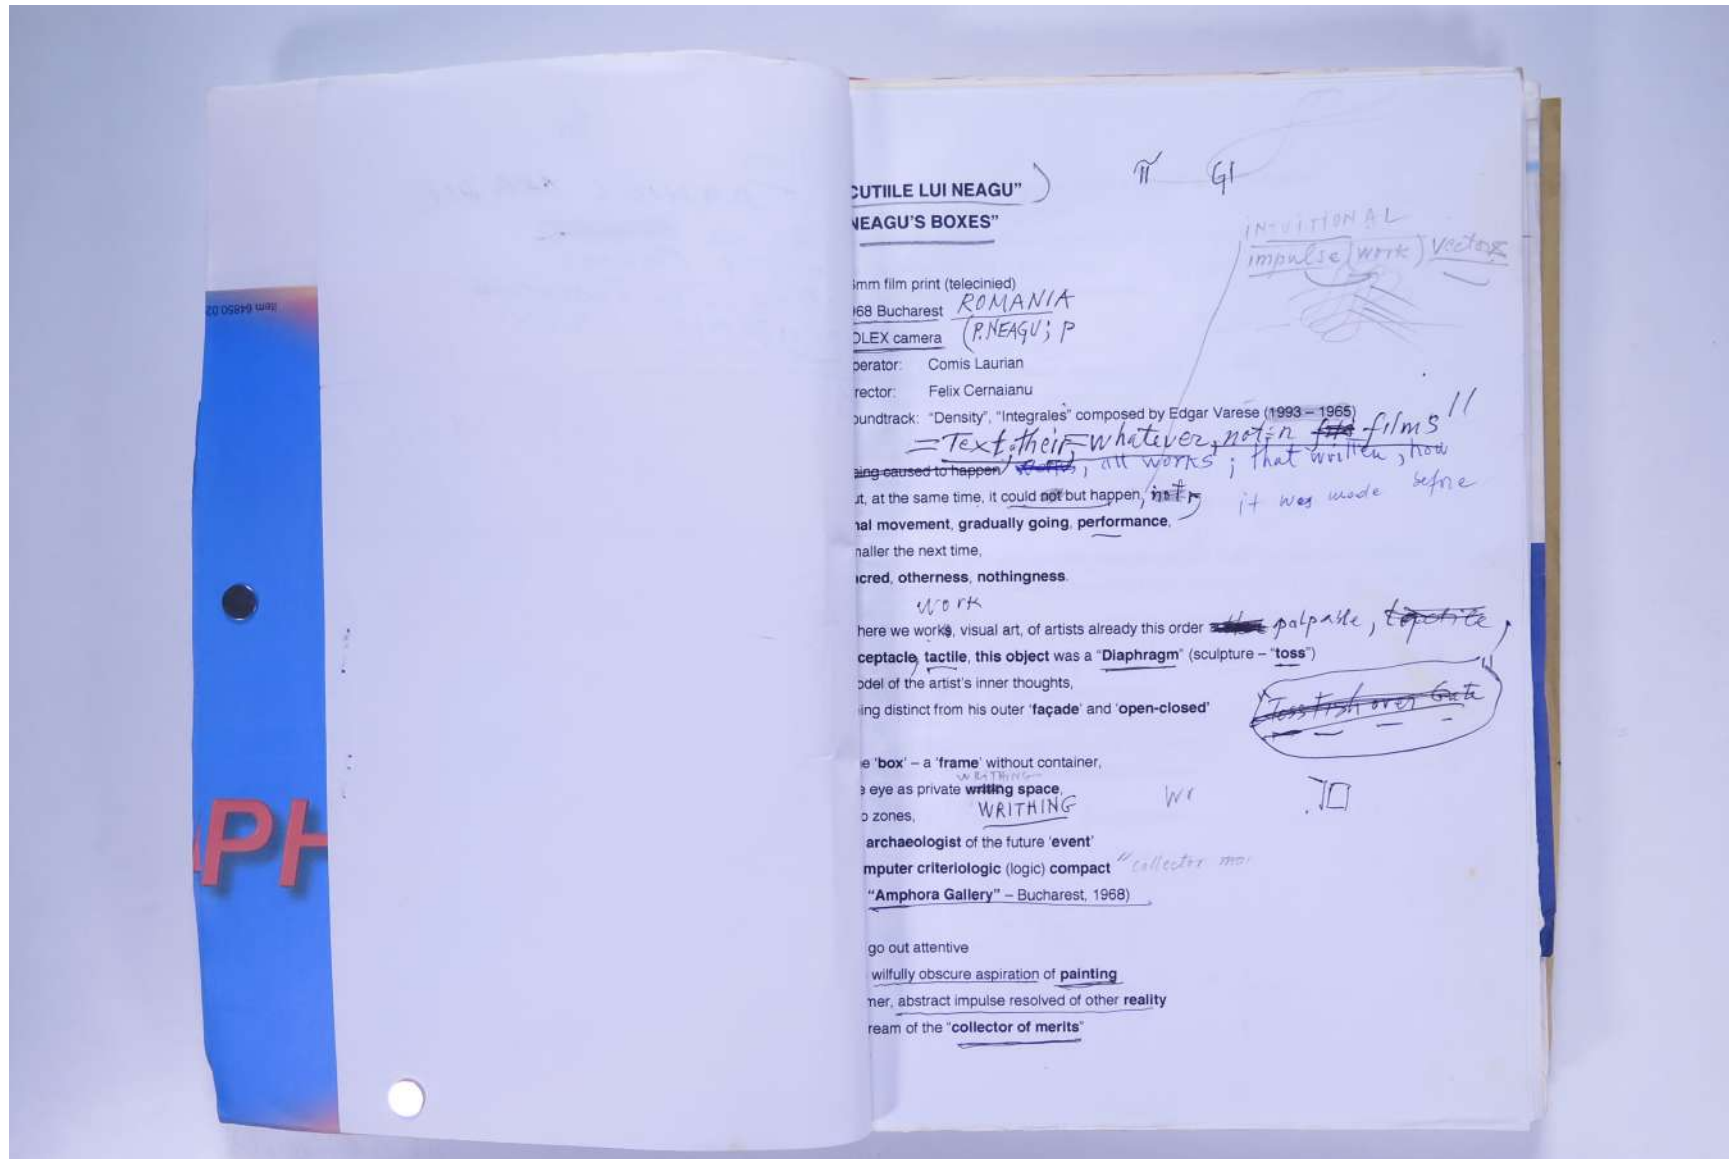 item 64850 02
PH
CUTIILE LUI NEAGU” ) π GI
NEAGU'S BOXES”
INTUITIONAL
impulse (work) vectors
mm film print (telecinied)
968 Bucharest ROMANIA
OLEX camera (P.NEAGU; P
perator: Comis Laurian
rector: Felix Cernaianu
oundtrack: “Density”, “Integrales” composed by Edgar Varese (1993 – 1965)
= Text, their, whatever, not in films"
eing caused to happen works, all works; that written, how
ut, at the same time, it could not but happen, it was made before
nal movement, gradually going, performance,
naller the next time,
acred, otherness, nothingness.
work
here we works, visual art, of artists already this order palpable,
ceptacle, tactile, this object was a “Diaphragm” (sculpture – “toss”)
odel of the artist's inner thoughts,
ing distinct from his outer ‘façade’ and ‘open-closed’
Toss fish over Gate
e ‘box’ – a ‘frame’ without container,
WRITHING
e eye as private writing space, Wr
o zones, WRITHING
archaeologist of the future ‘event’
mputer criteriologic (logic) compact "collector
“Amphora Gallery” – Bucharest, 1968)
go out attentive
wilfully obscure aspiration of painting
ner, abstract impulse resolved of other reality
ream of the “collector of merits”